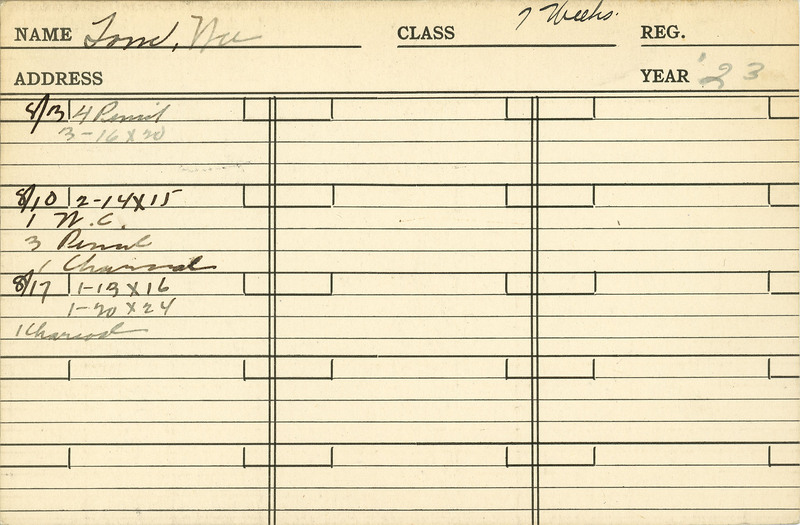 NAME CLASS 7 Weeks. REG.
ADDRESS YEAR '23
8/3 4 Pencil
3-16 X 20
8/10 2-14X15
1 W.C.
3 Pencil
1 Charcoal
8/17 1-13 X 16
1-20 X 24
1 Charcoal